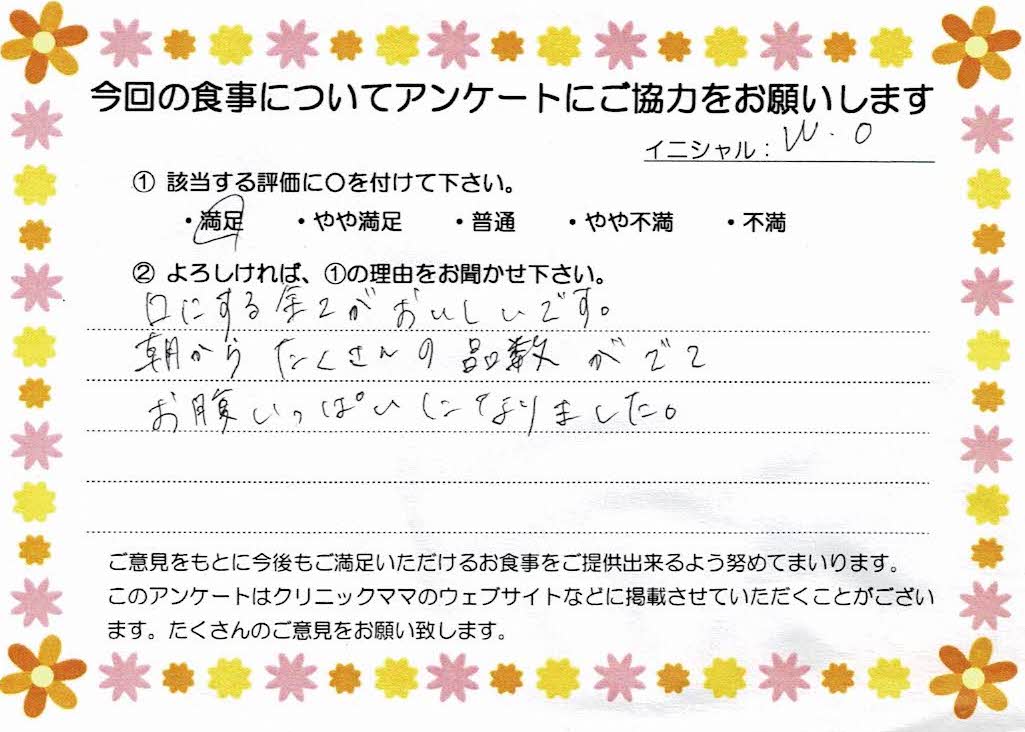 今回の食事についてアンケートにご協力をお願いします
イニシャル：W.O
① 該当する評価に〇を付けて下さい。
・満足 ・やや満足 ・普通 ・やや不満 ・不満
② よろしければ、①の理由をお聞かせ下さい。
口にする全てがおいしいです。
朝からたくさんの品数がでて
お腹いっぱいになりました。
ご意見をもとに今後もご満足いただけるお食事をご提供出来るよう努めてまいります。
このアンケートはクリニックママのウェブサイトなどに掲載させていただくことがござい
ます。たくさんのご意見をお願い致します。